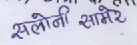 सलोनी सामेर